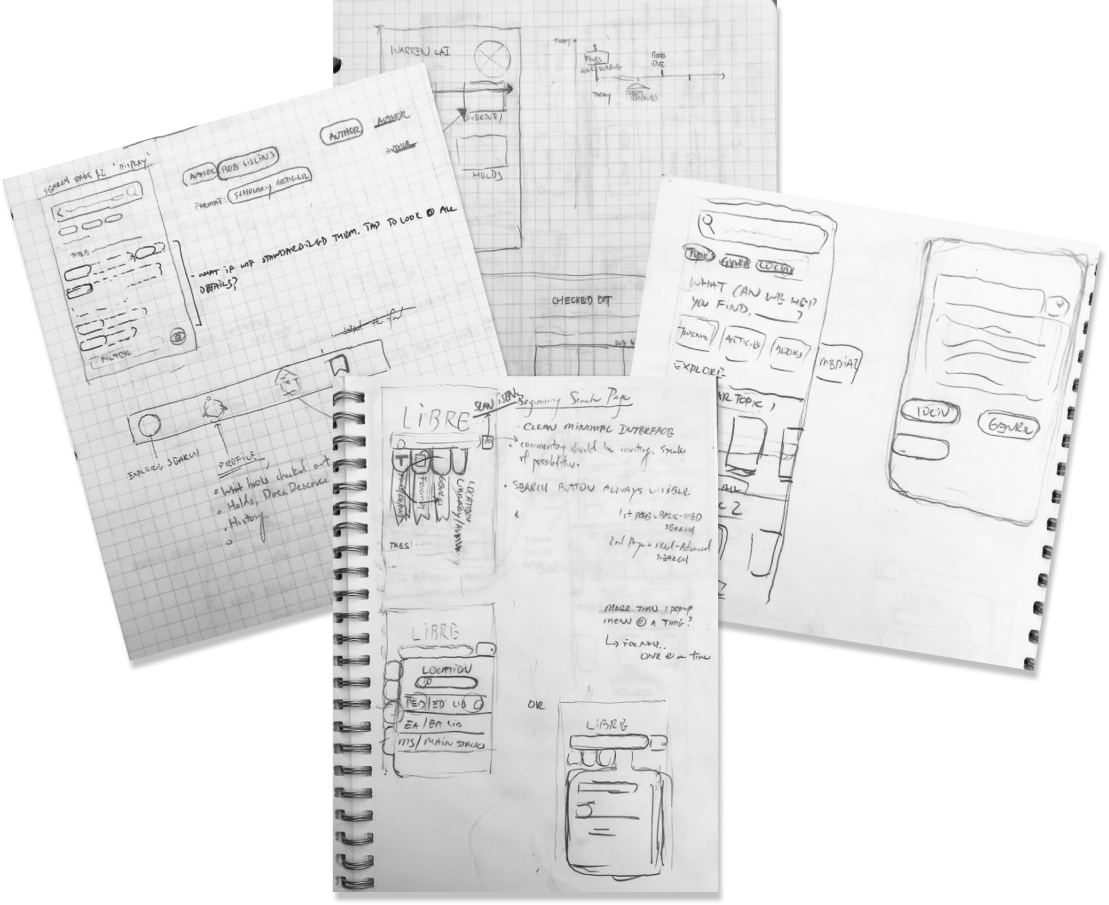 WARREN LAI
TODAY
FINES
TODAY
OVERDUE/
HOLDS
CHECKED OUT
SEARCH PAGE #2 "DISPLAY"
TITLES
FILTER
AUTHOR
BOB GILLINS
FORMAT:
SCHOLARLY ARTICLES
AUTHOR
AUTHOR
AUTHOR
- WHAT IF WE STANDARDIZED THEM. TAP TO LOOK @ ALL
DETAILS?
EXPLORE SEARCH
PROFILE
• What books checked out
• Holds, Docs. Deserves
• History
WHAT CAN WE HELP
YOU FIND, ?
JOURNALS
ARTICLES
BOOKS
MEDIA?
EXPLORE
TOPIC 1
ALL
2
LOGIN
LIBRE
SCAN ISBN
TAGS
LOCATION
Beginning Search Page
• CLEAN MINIMAL INTERFACE
• commentary should be inviting. Speaks
of possibilities.
• SEARCH BUTTON ALWAYS VISIBLE.
1st page = BASIC-MED
SEARCH
2nd Page = Med-Advanced
SEARCH
MORE THAN 1 POPUP
MENU @ A TIME?
↳ FOR NOW..
ONE @ a time
LIBRE
LOCATION
ED/ED LIB
EA/EA LIB
MS/MAIN STACKS
OR
LIBRE